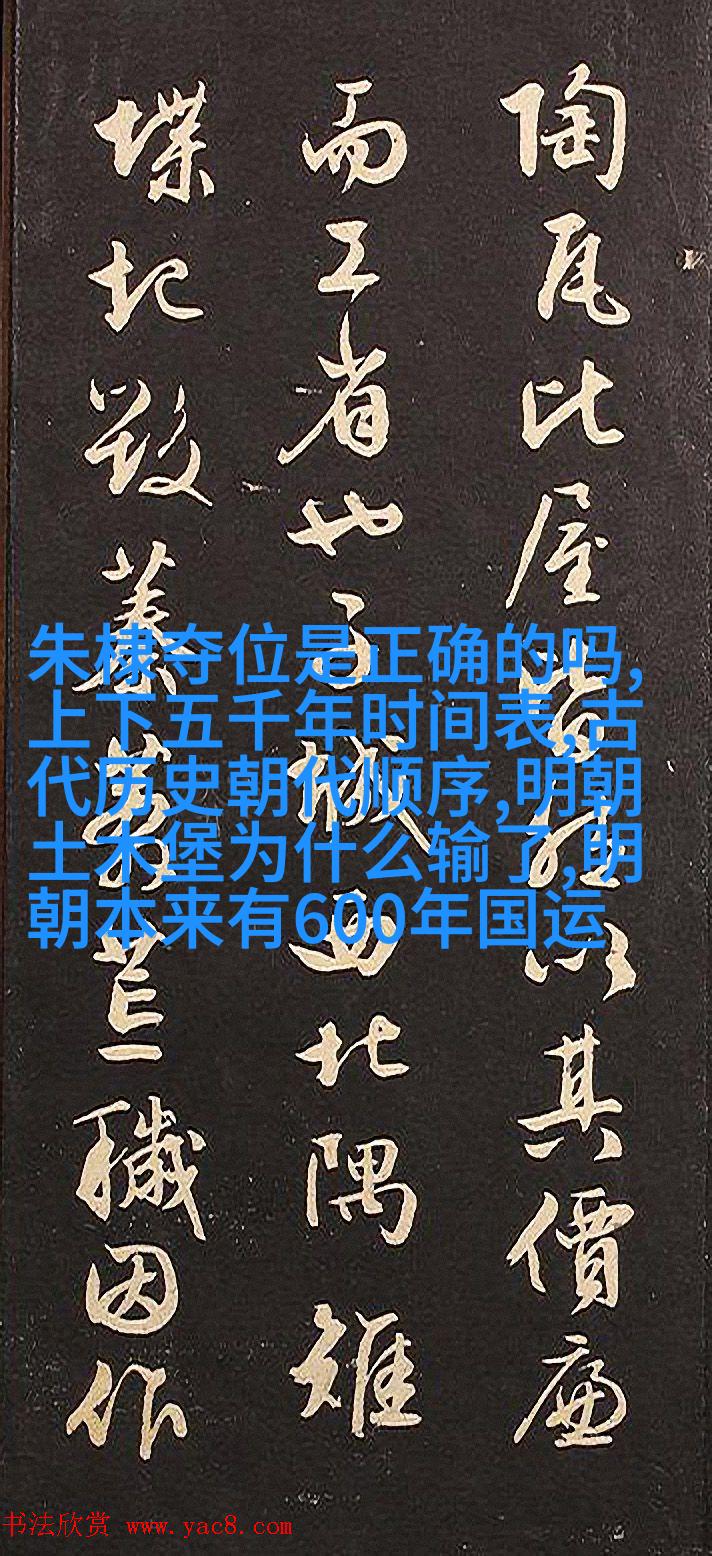 陶瓦比屋皆然以其價廉
而工省也子城西北隅雉
堞圮毀蓁莽荒穢因作
朱棣夺位是正确的吗,
上下五千年时间表,古
代历史朝代顺序,明朝
土木堡为什么输了,明
朝本来有600年国运
书法欣赏 www.yac8.com